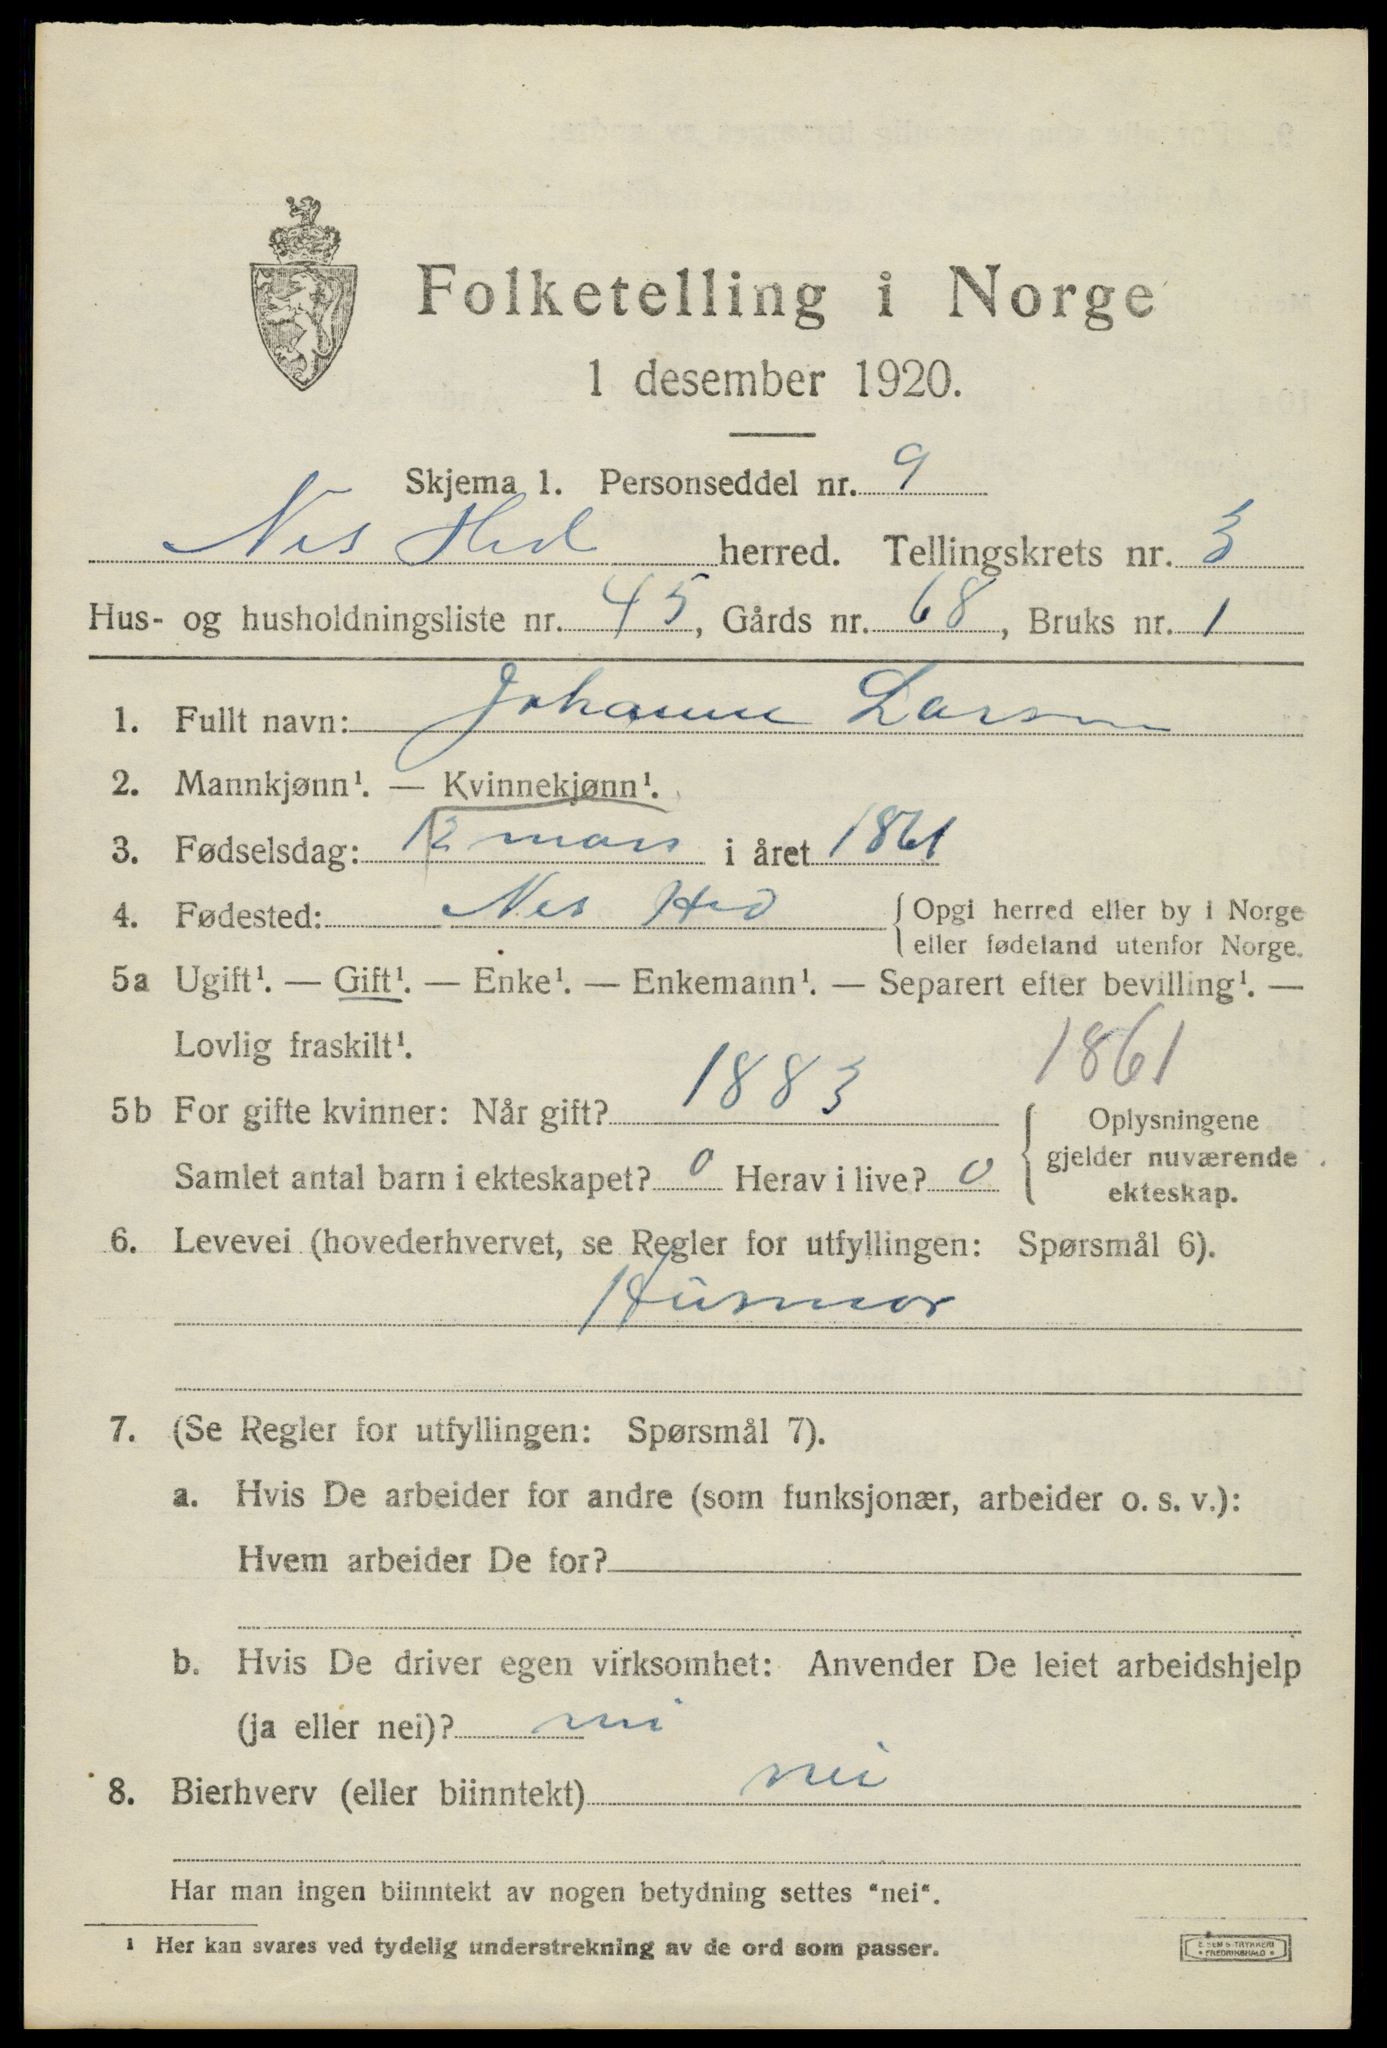 Folketelling i Norge
1 desember 1920.
Skjema 1. Personseddel nr. 9
Nes Hed herred. Tellingskrets nr. 3
Hus- og husholdningsliste nr. 45, Gårds nr. 68, Bruks nr. 1
1. Fullt navn: Johanne Larsen
2. Mannkjønn¹. — Kvinnekjønn¹.
3. Fødselsdag: 12 mars i året 1861
4. Fødested: Nes Hed { Opgi herred eller by i Norge
eller fødeland utenfor Norge.
5a Ugift¹. — Gift¹. — Enke¹. — Enkemann¹. — Separert efter bevilling¹. —
Lovlig fraskilt¹. 1861
5b For gifte kvinner: Når gift? 1883 { Oplysningene
gjelder nuværende
ekteskap.
Samlet antal barn i ekteskapet? 0 Herav i live? 0
6. Levevei (hovederhvervet, se Regler for utfyllingen: Spørsmål 6).
Husmor
7. (Se Regler for utfyllingen: Spørsmål 7).
a. Hvis De arbeider for andre (som funksjonær, arbeider o. s. v.):
Hvem arbeider De for?
b. Hvis De driver egen virksomhet: Anvender De leiet arbeidshjelp
(ja eller nei)? nei
8. Bierhverv (eller biinntekt) nei
Har man ingen biinntekt av nogen betydning settes "nei".
¹ Her kan svares ved tydelig understrekning av de ord som passer.
E. SEM'S TRYKKERI
• FREDRIKSHALD •